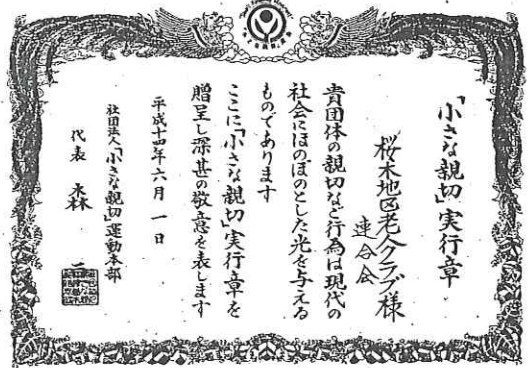 「小さな親切」実行章
桜木地区老人クラブ様
連合会
貴団体の親切な行為は現代の
社会にほのぼのとした光を与える
ものであります
ここに「小さな親切」実行章を
贈呈し深甚の敬意を表します
平成十四年六月一日
社団法人「小さな親切」運動本部
代表